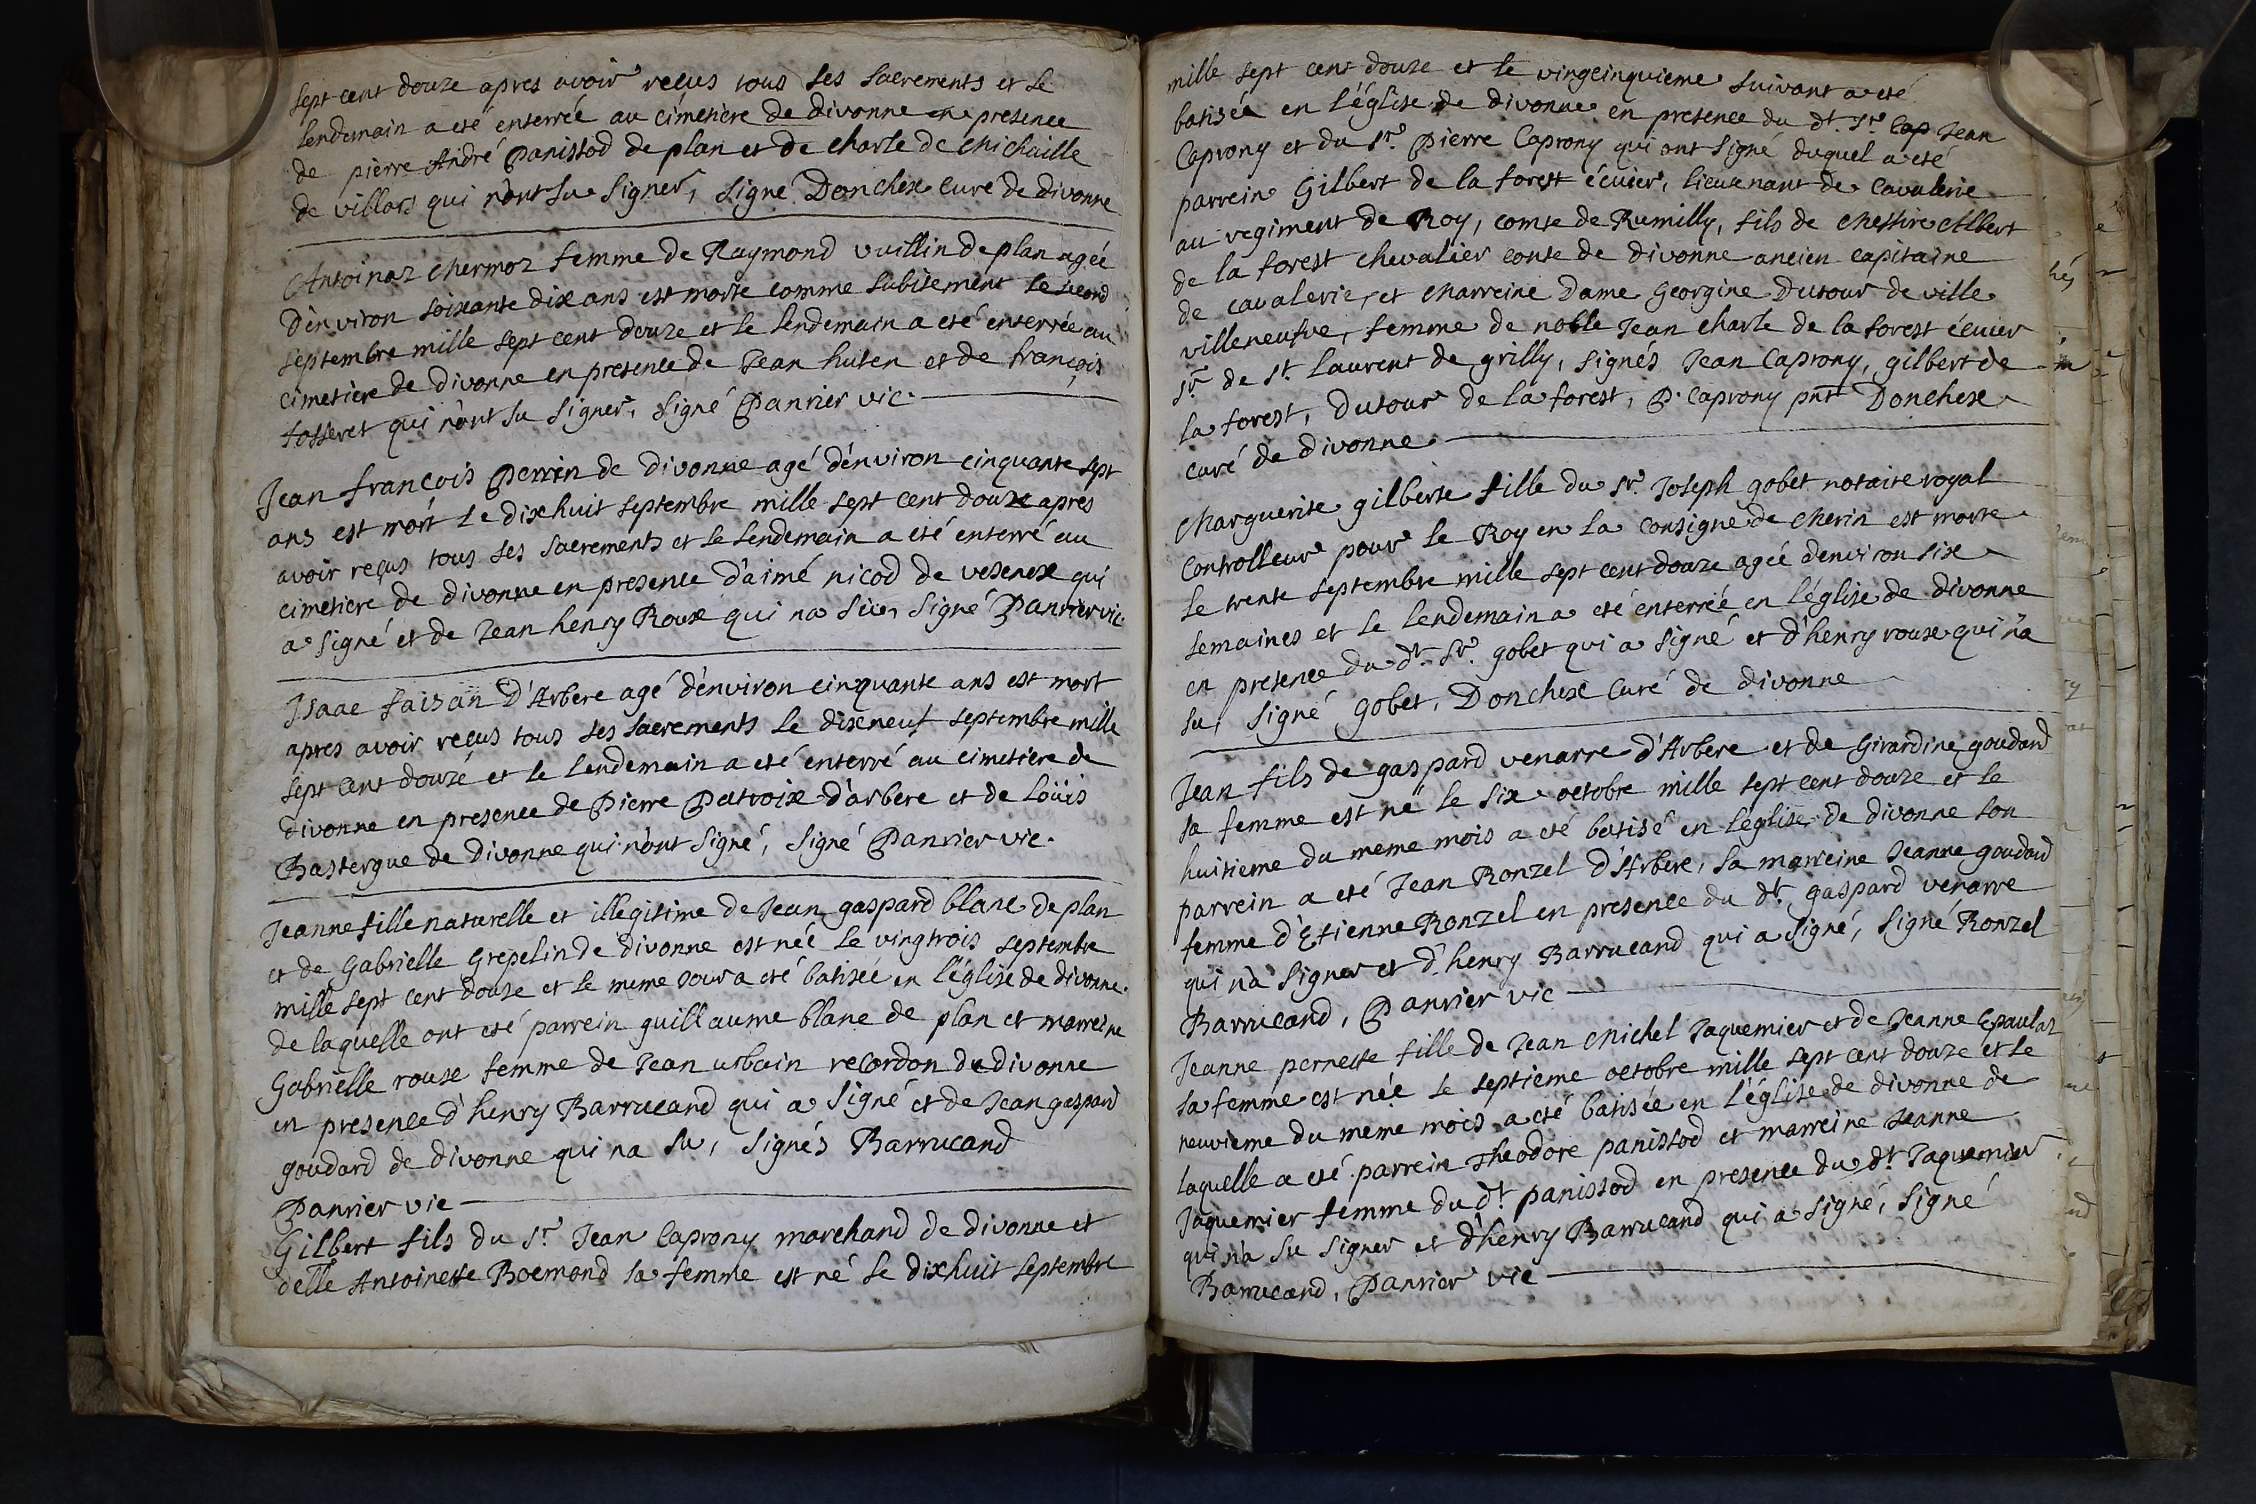 sept cent douze apres avoir reçus tous ses sacrements et le
lendemain a eté enterrée au cimetiere de divonne en presence
de pierre André Panissod de plan et de charle de Michaille
de villars qui n'ont su signer, signé Donchex curé de divonne
Antoinaz chermoz femme de Raymond vuillin de plan agée
d'environ soixante dix ans est morte comme subitement le second
septembre mille sept cent douze et le lendemain a eté enterrée au
cimetiere de divonne en presence de Jean huten et de françois
fosseret qui n'ont su signer, signé Panrier vic.
Jean francois Perrin de divonne agé d'environ cinquante sept
ans est mort le dixhuit septembre mille sept cent douze apres
avoir reçus tous ses sacrements et le lendemain a eté enterré au
cimetiere de divonne en presence d'aimé nicod de vesenex qui
a signé et de Jean henry Roux qui na sçu, signé Panrier vic.
Isaac faisan d'Arbere agé d'environ cinquante ans est mort
apres avoir reçus tous ses sacrements le dixneuf septembre mille
sept cent douze et le lendemain a eté enterré au cimetiere de
divonne en presence de Pierre Patroix d'arbere et de Loüis
Bastergue de divonne qui n'ont signé, signé Panrier vic.
Jeanne fille naturelle et illegitime de Jean gaspard blanc de plan
et de Gabrielle Grepelin de divonne est née le vingtrois septembre
mille sept cent douze et le meme jour a eté batisée en l'église de divonne.
de laquelle ont eté parrein guillaume blanc de plan et marreine
Gabrielle roux femme de Jean urbain recordon de divonne
en presence d'henry Barrucand qui a signé et de Jean gaspard
goudard de divonne qui na su, signés Barrucand
Panrier vic
Gilbert fils du Sr. Jean Caprony marchand de divonne et
delle Antoinette Roemond sa femme est né le dixhuit septembre
mille sept cent douze et le vingcinquieme suivant a eté
batisée en l'église de divonne en presence du dt. Sr. Cap Jean
Caprony et du Sr. Pierre Caprony qui ont signé duquel a eté
parrein Gilbert de la forest écuier, lieutenant de cavalerie
au regiment de Roy, comte de Rumilly, fils de Messire Albert
de la forest chevalier conte de divonne ancien capitaine
de cavalerie, et Marreine Dame Georgine Dutour de ville
villeneufve, femme de noble Jean charle de la forest écuier
sr. de St. Laurent de grilly, signés Jean Caprony, gilbert de
la forest, Dutour de la forest, P. Caprony pnt Donchex
curé de divonne.
Marguerite gilberte fille du Sr. Joseph gobet notaire royal
Controlleur pour le Roy en la consigne de Merin est morte
le trente septembre mille sept cent douze agée denviron six
semaines et le lendemain a eté enterrée en l'église de divonne
en presence du dt. Sr. gobet qui a signé et d'henry roux qui n'a
su, signé gobet, Donchex Curé de divonne
Jean fils de gaspard venarre d'Arbere et de Girardine goudard
sa femme est né le six octobre mille sept cent douze et le
huitieme du meme mois a eté batisé en l'église de divonne son
parrein a eté Jean Ronzel d'Arbere, sa marreine Jeanne goudard
femme d'Etienne Ronzel en presence du dt. gaspard venarre
qui n'a signer et d'henry Barrucand qui a signé, signé Ronzel
Barrucand, Panrier vic
Jeanne pernette fille de Jean Michel Jaquemier et de Jeanne Epaulaz
sa femme est née le septieme octobre mille sept cent douze et le
neuvieme du meme mois a eté batisée en l'église de divonne de
laquelle a eté parrein Theodore panissod et marreine Jeanne
Jaquemier femme du dt. panissod en presence du dt. Jaquemier
qui n'a su signer et d'henry Barrucand qui a signé, signé
Barrucand, Panrier vic